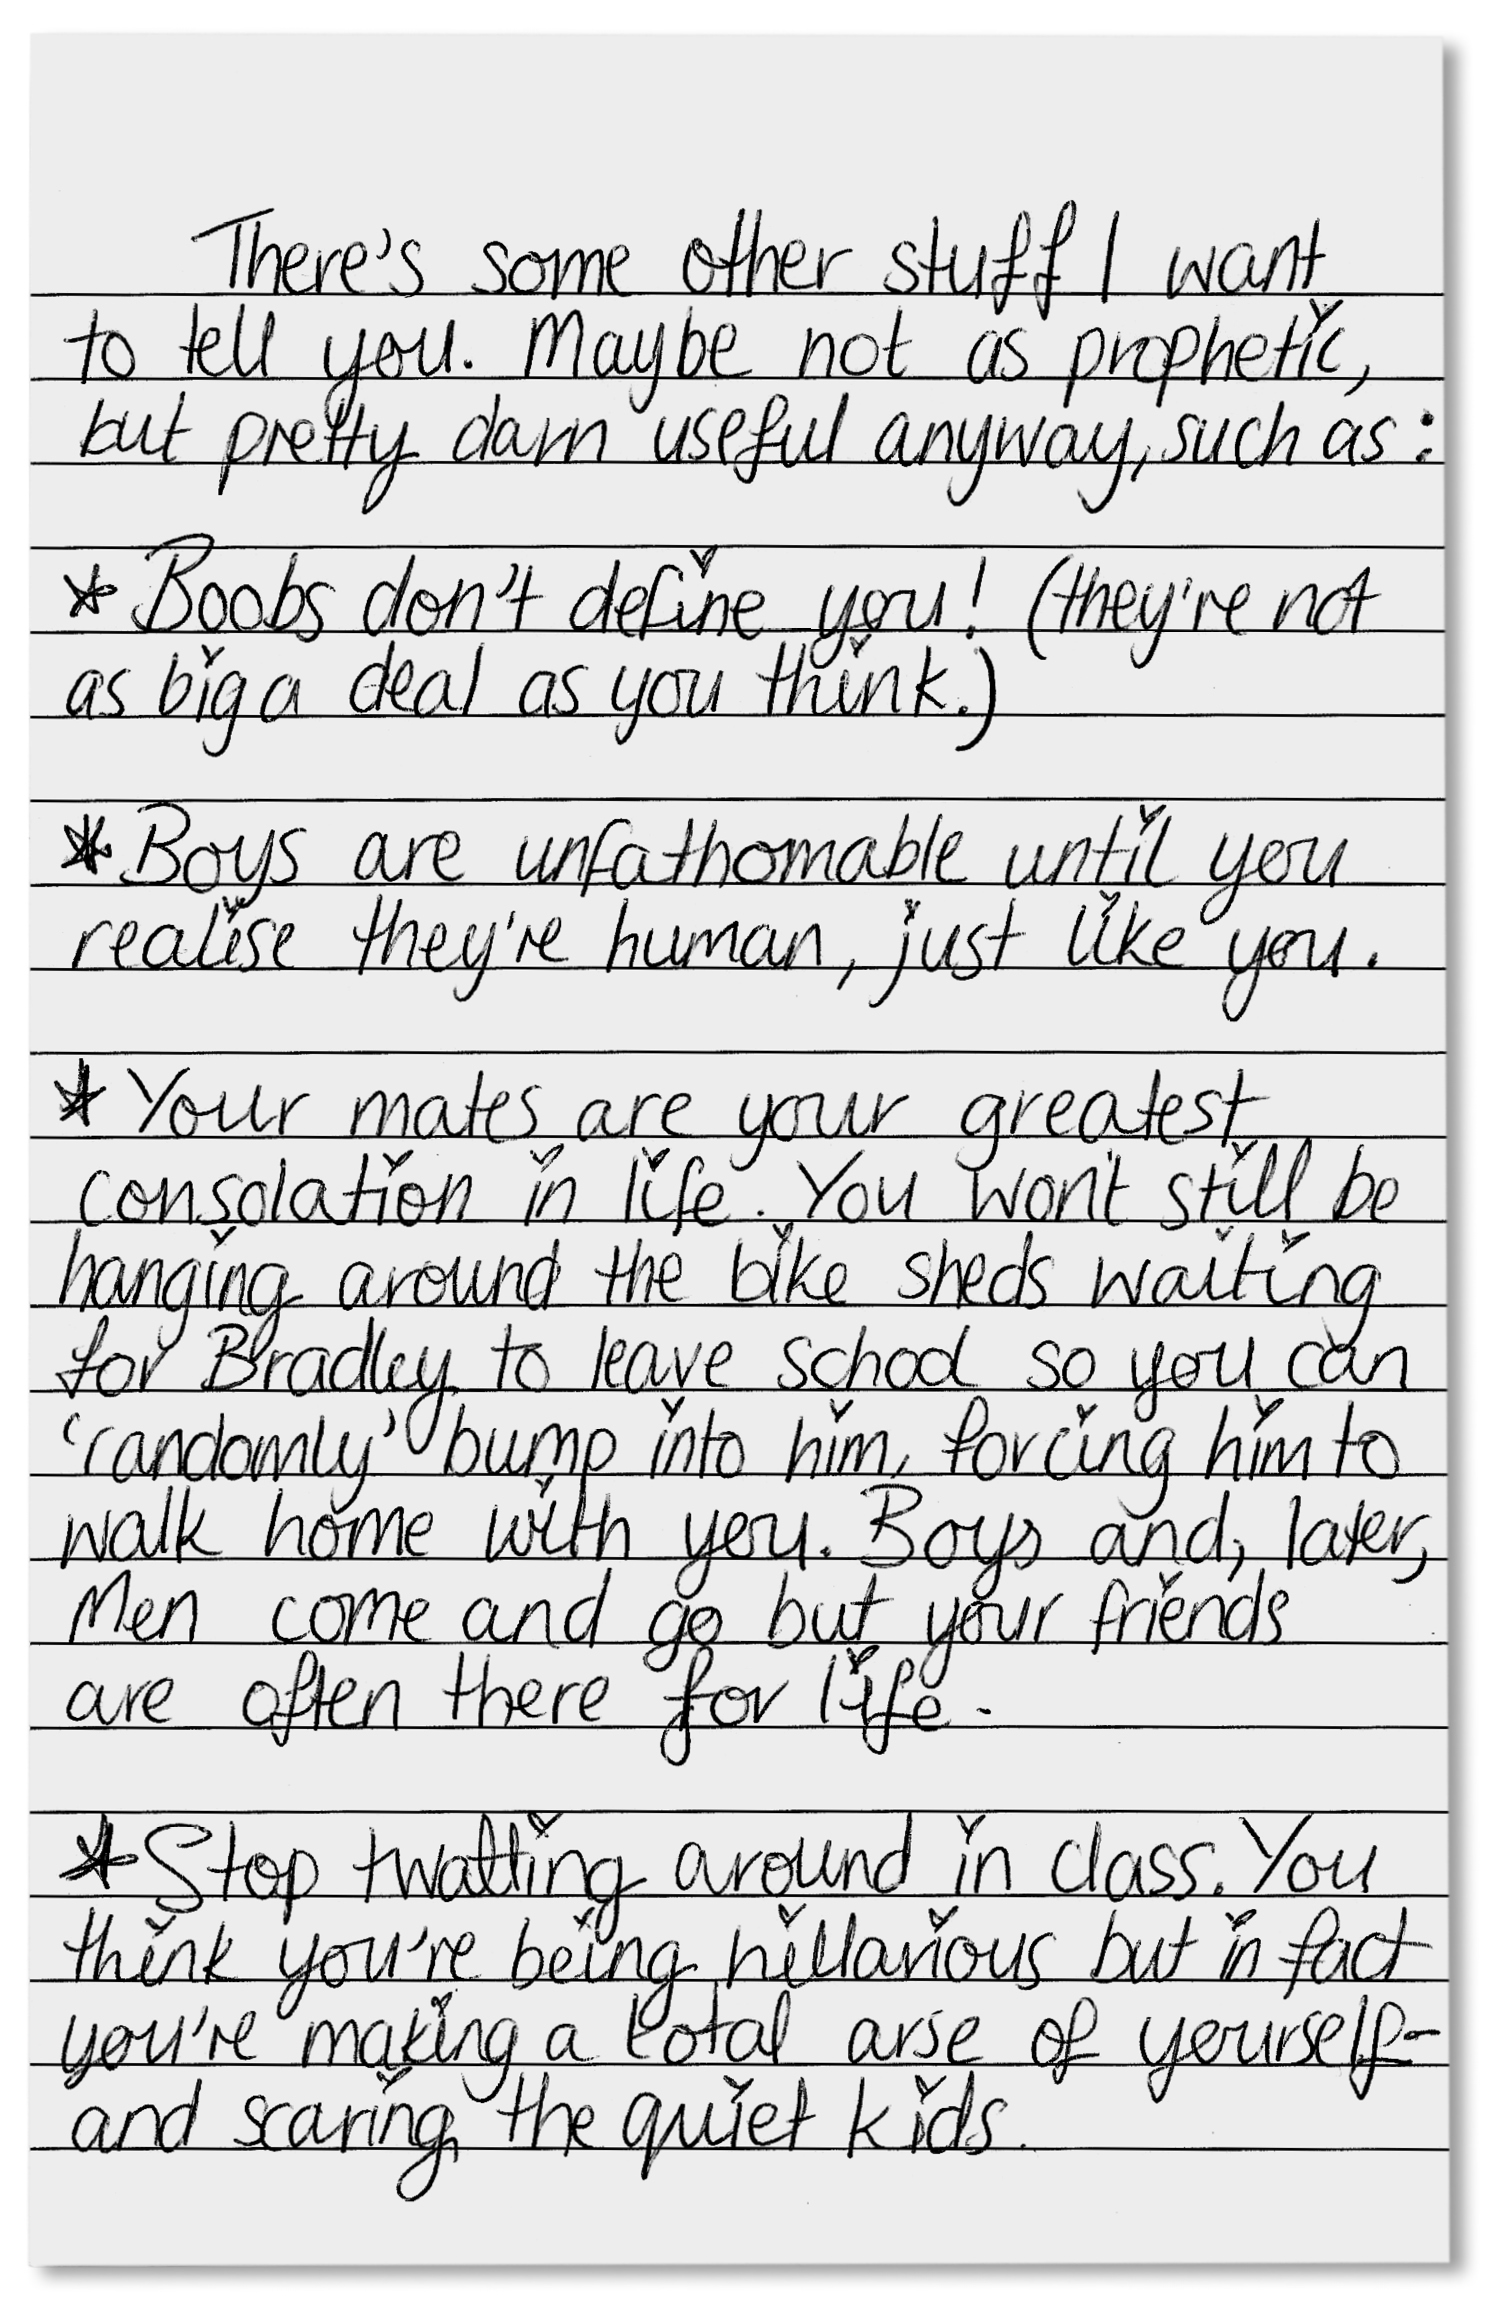 There's some other stuff I want
to tell you. Maybe not as prophetic,
but pretty darn useful anyway, such as:
* Boobs don't define you! (they're not
as big a deal as you think.)
* Boys are unfathomable until you
realise they're human, just like you.
* Your mates are your greatest
consolation in life. You won't still be
hanging around the bike sheds waiting
for Bradley to leave school so you can
'randomly' bump into him, forcing him to
walk home with you. Boys and, later,
Men come and go but your friends
are often there for life.
* Stop twatting around in class. You
think you're being hillarious but in fact
you're making a total arse of yourself-
and scaring the quiet kids.